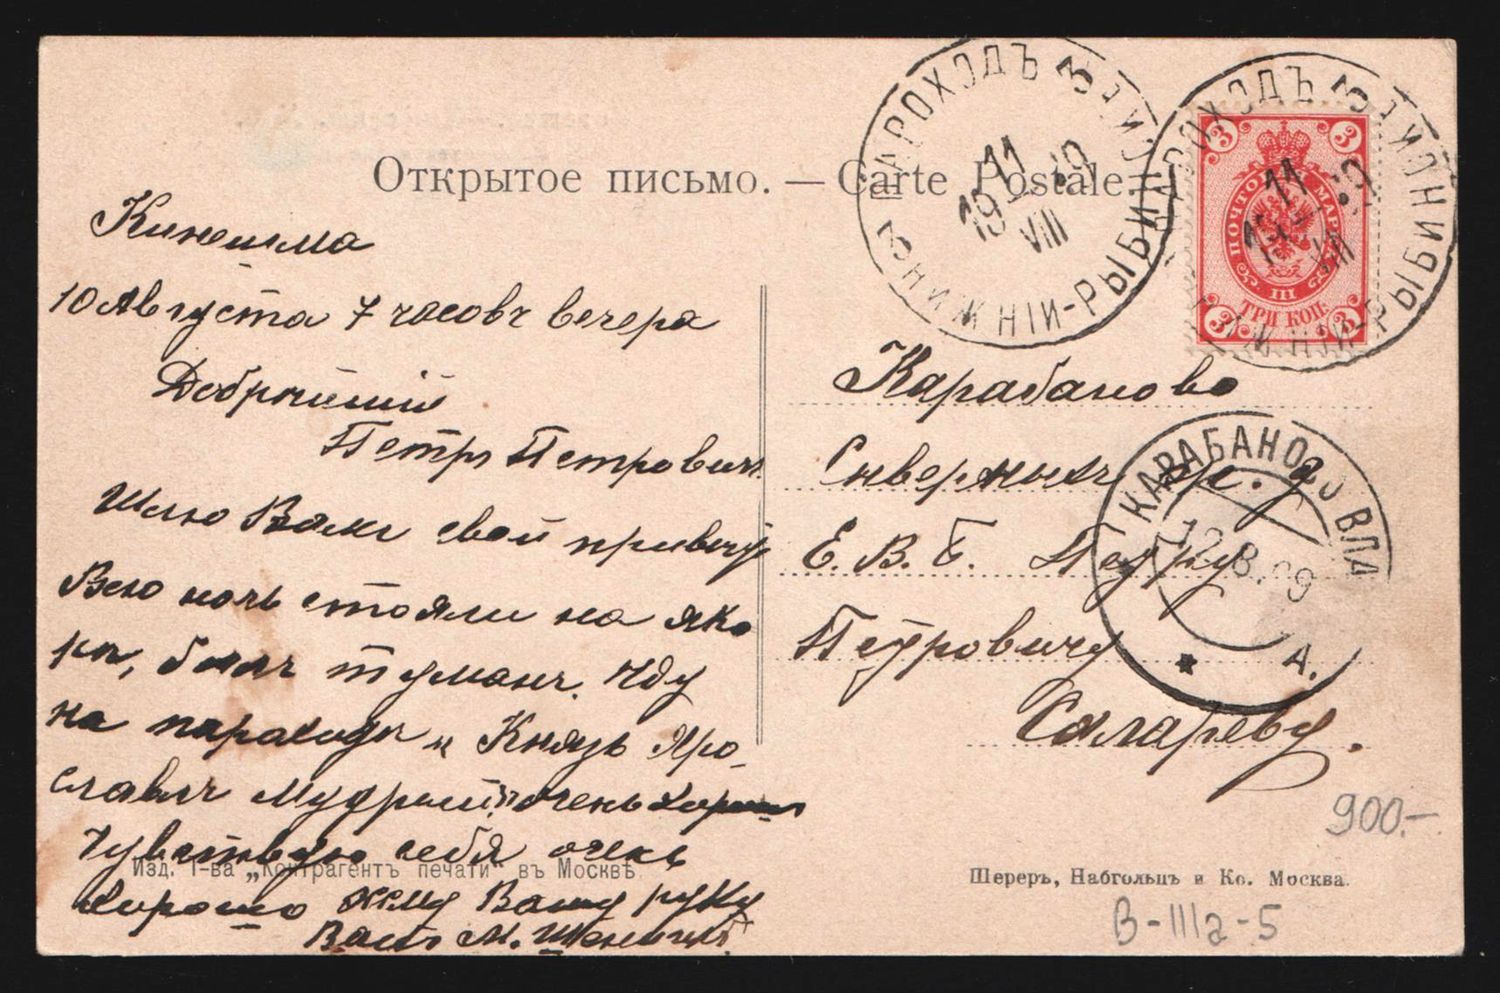 Открытое письмо. — Carte Postale.
ПАРОХОДЪ 3 НИЖНІЙ-РЫБИНСК
11 VIII 19 09
ПАРОХОДЪ НИЖНІЙ-РЫБИНСК
11 VIII
3 3
ПОЧТОВ МАРК
III
ТРИ КОП.
3 3
Кинешма
10 Августа 7 часовъ вечера
Добрѣйшій
Петръ Петровичъ
Шлю Вамъ свой привѣтъ
Всю ночь стояли на яко
рѣ, былъ туманъ. Иду
на пароходѣ „Князь Яро-
славъ Мудрый" очень
Чувствую себя очень
хорошо жму Вашу руку
Вашъ М.
Карабаново
Сѣверныхъ ж. д.
Е. В. Б. Петру
Петровичу
Саларёву.
КАРАБАНОВО ВЛАД
12.8.09
* А.
Изд. Т-ва „Контрагентъ печати" въ Москвѣ.
Шереръ, Набгольцъ и Ко. Москва.
900.-
В-IIIa-5